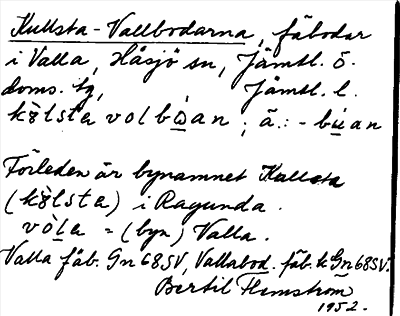 Kullsta-Vallbodarna, fäbodar
i Valla, Håsjö sn, Jämtl. ö.
doms. tg, Jämtl. l.
volbo̲an; ä.: - bu̲an
Förleden är bynamnet Kullsta
i Ragunda.
vò̲la = (byn) Valla.
Valla fäb. Gn 68SV, Vallabod. fäb. k Gn 68SV.
Bertil Flemström
1952.